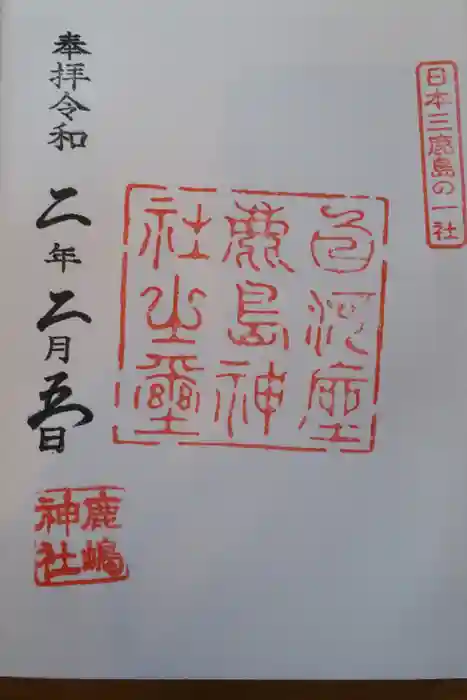 日本三鹿島の一社
白河座
鹿島神
社之璽
奉拝令和二年二月五日
鹿嶋
神社